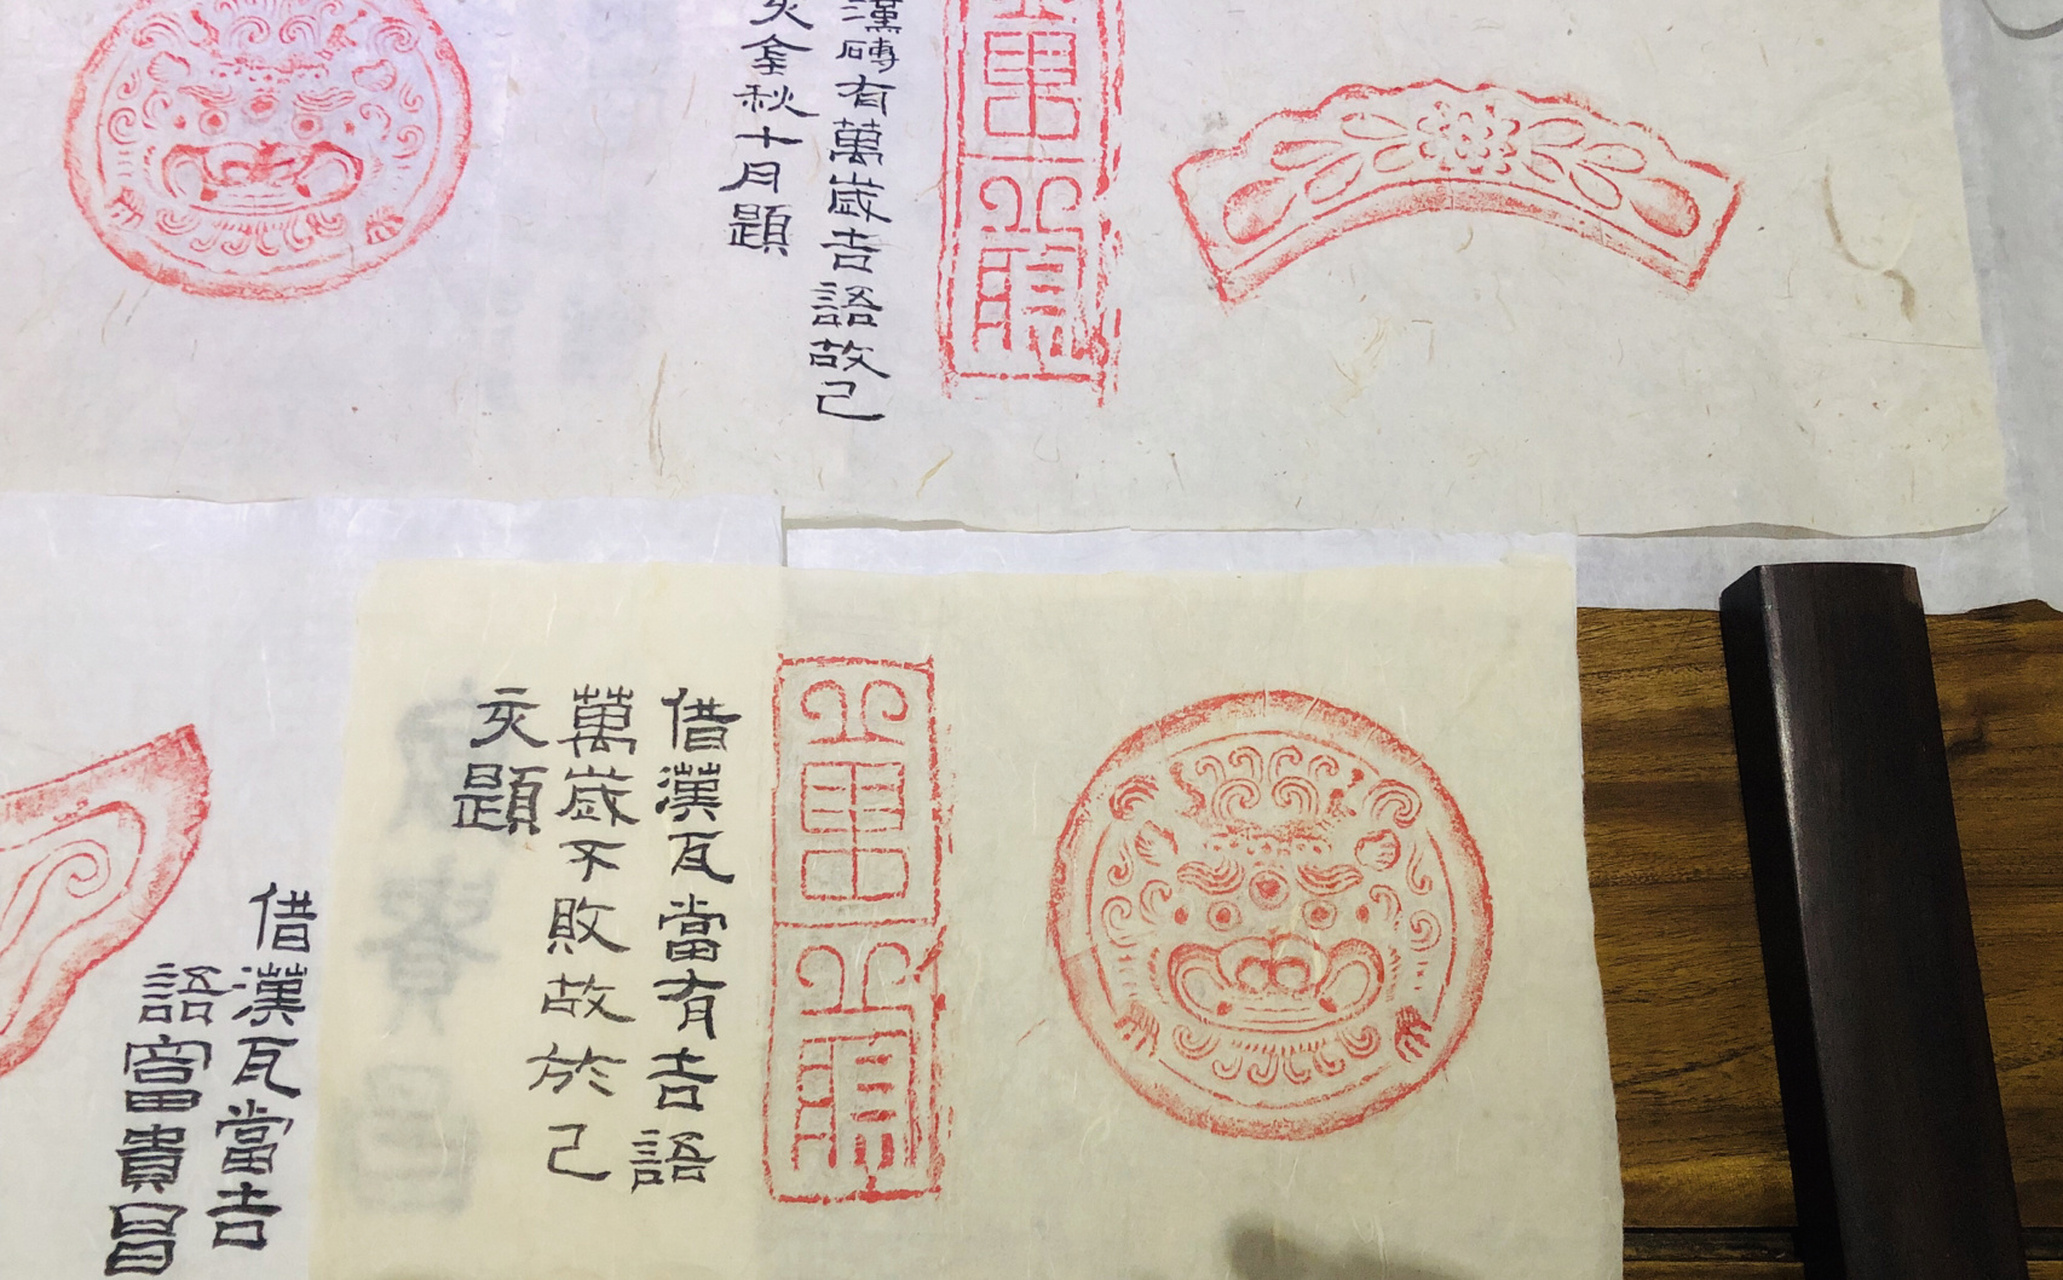 萬歲
漢磚有萬歲吉語故己
亥金秋十月題
萬歲
借漢瓦當有吉語
萬歲不敗故於己
亥題
借漢瓦當吉
語富貴昌